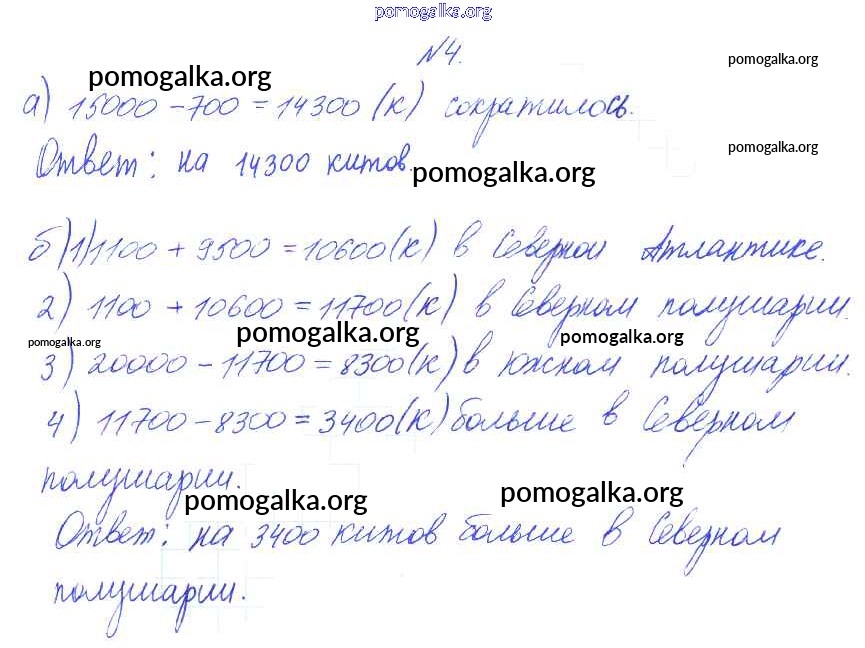 pomogalka.org
№4.
pomogalka.org
pomogalka.org
а) 15000 - 700 = 14300 (к) сократилось.
pomogalka.org
Ответ: на 14300 китов.
pomogalka.org
б) 1) 1100 + 9500 = 10600 (к) в Северной Атлантике.
2) 1100 + 10600 = 11700 (к) в Северном полушарии.
pomogalka.org
pomogalka.org
pomogalka.org
3) 20000 - 11700 = 8300 (к) в южном полушарии.
4) 11700 - 8300 = 3400 (к) больше в Северном
полушарии.
pomogalka.org
pomogalka.org
Ответ: на 3400 китов больше в Северном
полушарии.